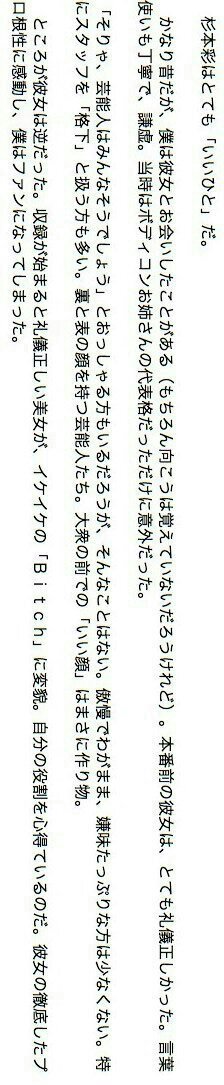 杉本彩はとても「いいひと」だ。
かなり昔だが、僕は彼女とお会いしたことがある（もちろん向こうは覚えていないだろうけれど）。本番前の彼女は、とても礼儀正しかった。言葉
使いも丁寧で、謙虚。当時はボディコンお姉さんの代表格だっただけに意外だった。
「そりゃ、芸能人はみんなそうでしょう」とおっしゃる方もいるだろうが、そんなことはない。傲慢でわがまま、嫌味たっぷりな方は少なくない。特
にスタッフを「格下」と扱う方も多い。裏と表の顔を持つ芸能人たち。大衆の前での「いい顔」はまさに作り物。
ところが彼女は逆だった。収録が始まると礼儀正しい美女が、イケイケの「Ｂｉｔｃｈ」に変貌。自分の役割を心得ているのだ。彼女の徹底したプ
ロ根性に感動し、僕はファンになってしまった。